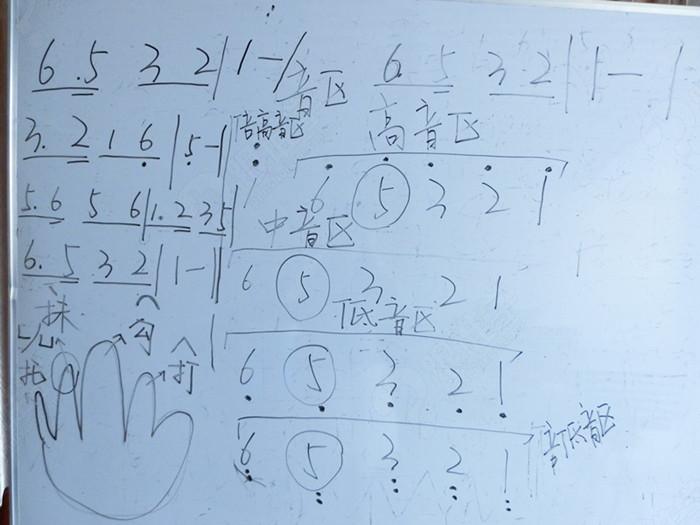 6.5 3 2 | 1 - | 音区 6. 5 3 2 | 1 - |
3. 2 1 6 | 5 - | 倍高音区 高音区
5.6 5 6 | 1.2 3 5 | 1 6 5 3 2 1
中音区
6. 5 3 2 | 1 - || 6 5 3 2 1
抹 低音区
托 勾 打 6 5 3 2 1
6 5 3 2 1 音区